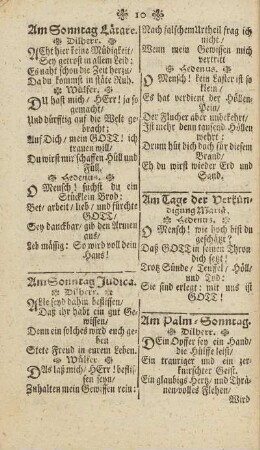 10
Am Sonntag Lätare.
Dilherr.
Geht hier keine Müdigkeit/
Sey getrost in allem Leid;
Es naht schon die Zeit herzu/
Da du kommst in stäte Ruh.
Wülfer.
Du hast mich / HErr! ja so
gemacht/
Und dürfftig auf die Welt ge-
bracht:
Auf Dich / mein GOTT! ich
trauen will/
Du wirst mir schaffen Hüll und
Füll.
Hedenus.
O Mensch! suchst du ein
Stücklein Brod:
Bet / arbeit / lieb / und fürchte
GOTT/
Sey danckbar / gib den Armen
aus/
Leb mässig: So wird voll dein
Haus!
Am Sonntag Judica.
Dilherr.
Alle seyd dahin beflissen/
Daß ihr habt ein gut Ge-
wissen/
Denn ein solches wird euch ge-
ben
Stete Freud in eurem Leben.
Wülfer.
Das laß mich / HErr! beflis-
sen seyn/
Zuhalten mein Gewissen rein:
Nach falschem Urtheil frag ich
nicht/
Wenn mein Gewissen mich
vertritt
Hedenus.
O Mensch! kein Laster ist so
klein/
Es hat verdient der Höllen-
Pein/
Der Flucher aber unbekehrt/
Ist mehr denn tausend Höllen
wehrt:
Drum hüt dich doch für diesem
Brand/
Eh du wirst wieder Erd und
Sand.
Am Tage der Verkün-
digung Mariä.
Hedenus.
O Mensch! wie hoch bist du
geschätzt?
Daß GOTT in seinen Thron
dich setzt!
Trotz Sünde / Teuffel / Höll/
und Tod:
Sie sind erlegt: mit uns ist
GOTT!
Am Palm-Sonntag.
Dilherr.
Dein Opffer sey ein Hand/
die Hülffe leist/
Ein trauriger und ein zer-
knirschter Geist.
Ein glaubigs Hertz / und Thrä-
nen-volles Flehen/
Wird